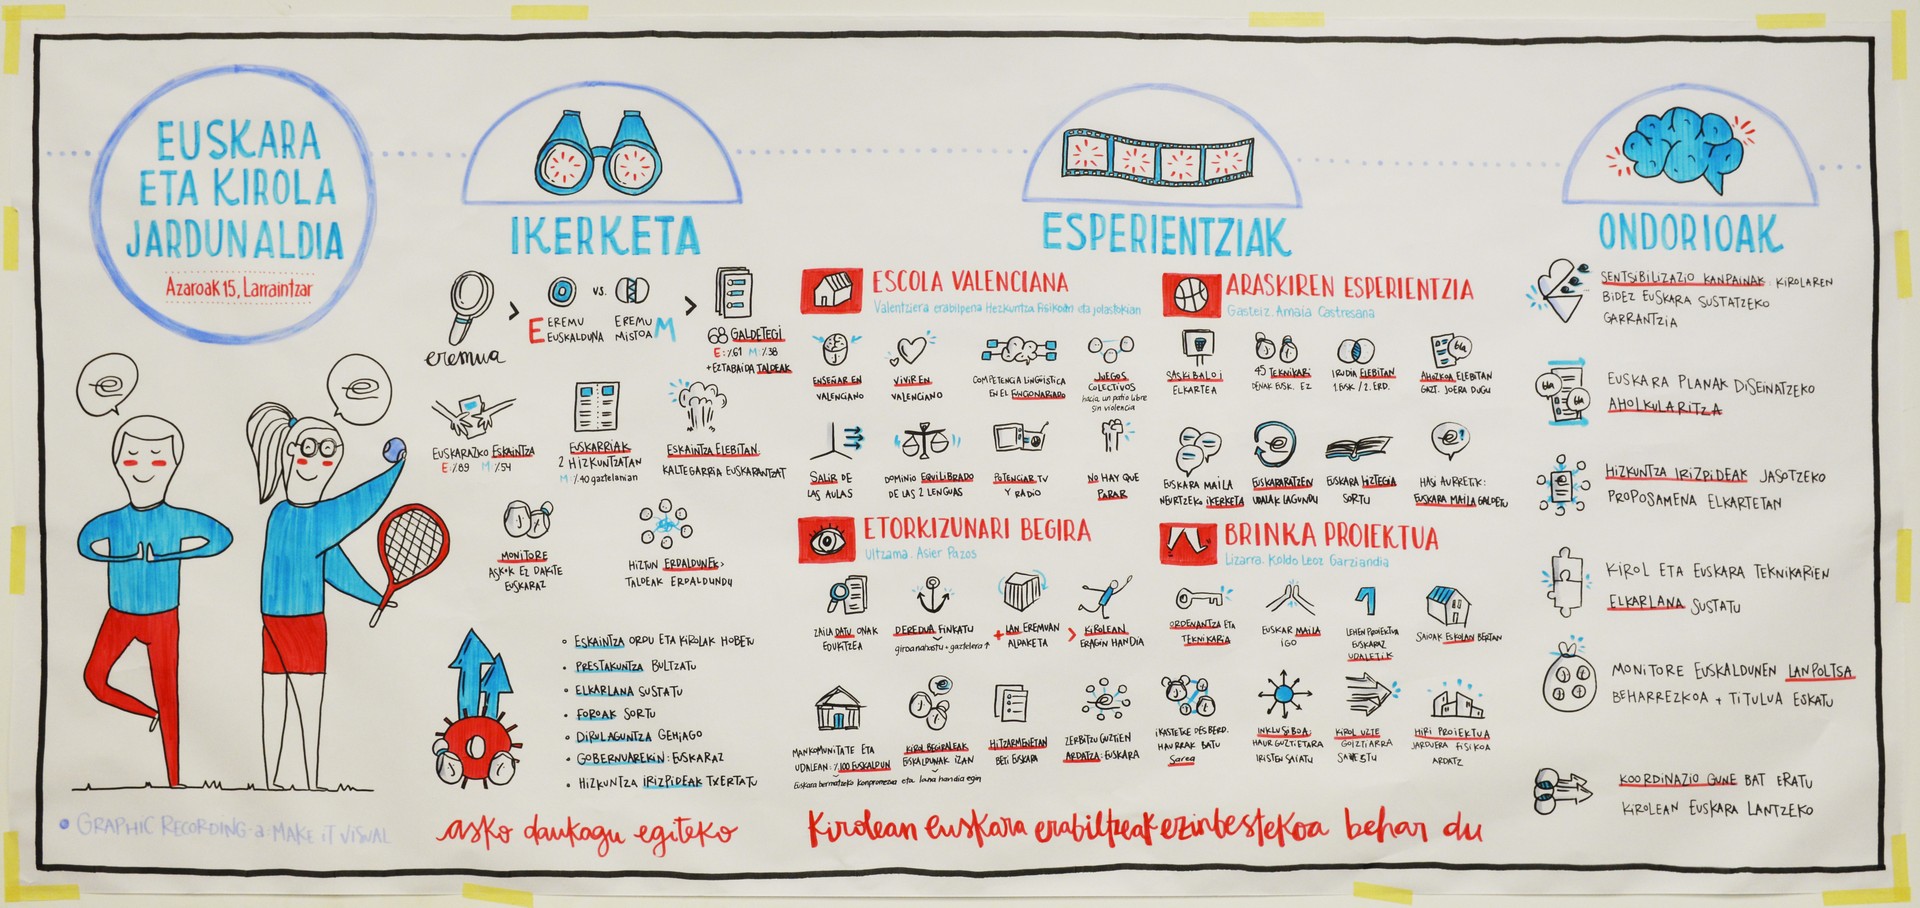 EUSKARA
ETA KIROLA
JARDUNALDIA
Azaroak 15, Larraintzar
GRAPHIC RECORDING a: MAKE IT VISUAL
IKERKETA
eremua
E EREMU
EUSKALDUNA
VS.
EREMU M
MISTOA
68 GALDETEGI
E: %61 M: %38
+ EZTABAIDA TALDEAK
EUSKARAZKO ESKAINTZA
E: %89 M: %54
EUSKARRIAK
2 HIZKUNTZATAN
M: %40 gaztelanian
ESKAINTZA ELEBITAN:
KALTEGARRIA EUSKARANTZAT
MONITORE
ASKOK EZ DAKITE
EUSKARAZ
HIZTUN ERDALDUNEK >
TALDEAK ERDALDUNDU
ESKAINTZA ORDU ETA KIROLAK HOBETU
PRESTAKUNTZA BULTZATU
ELKARLANA SUSTATU
FOROAK SORTU
DIRULAGUNTZA GEHIAGO
GOBERNUAREKIN: EUSKARAZ
HIZKUNTZA IRIZPIDEAK TXERTATU
asko daukagu egiteko
ESPERIENTZIAK
ESCOLA VALENCIANA
Valentziera erabilpena Hezkuntza Fisikoan eta jolastokian
ENSEÑAR EN
VALENCIANO
VIVIR EN
VALENCIANO
COMPETENCIA LINGÜISTICA
EN EL FUNCIONARIADO
JUEGOS
COLECTIVOS
hacia un patio libre
sin violencia
SALIR DE
LAS AULAS
DOMINIO EQUILIBRADO
DE LAS 2 LENGUAS
POTENCIAR TV
Y RADIO
NO HAY QUE
PARAR
ARASKIREN ESPERIENTZIA
Gasteiz. Amaia Castresana
SASKIBALOI
ELKARTEA
45 TEKNIKARI
DENAK EUSK. EZ
IRUDIA ELEBITAN
1. EUSK / 2. ERD.
AHOZKOA ELEBITAN
GAZT. JOERA DUGU
EUSKARA MAILA
NEURTZEKO IKERKETA
EUSKARARATZEN
UDALAK LAGUNDU
EUSKARA HIZTEGIA
SORTU
HASI AURRETIK:
EUSKARA MAILA GALDETU
ETORKIZUNARI BEGIRA
Ultzama. Asier Pazos
ZAILA DATU ONAK
EDUKITZEA
DEREDUA FINKATU
giroa nahastu = gaztelera ↑
+ LAN EREMUAN
ALDAKETA
> KIROLEAN
ERAGIN HANDIA
MANKOMUNITATE ETA
UDALEAN: %100 EUSKALDUN
Euskara bermatzeko konpromezua eta lana handia egin
KIROL BEGIRALEAK
EUSKALDUNAK IZAN
HITZARMENETAN
BETI EUSKARA
ZERBITZU GUZTIEN
ARDATZA: EUSKARA
BRINKA PROIEKTUA
Lizarra. Koldo Leoz Garziandia
ORDENANTZA ETA
TEKNIKARIA
EUSKAR MAILA
IGO
LEHEN PROIEKTUA
EUSKARAZ
UDALETIK
SAIOAK ESKOLAN BERTAN
IKASTETXE DESBERD.
HAURRAK BATU
Sarea
INKLUSIBOA:
HAUR GUZTIETARA
IRISTEN SAIATU
KIROL UZTE
GOIZTIARRA
SAIHESTU
HIRI PROIEKTUA
JARDUERA FISIKOA
ARDATZ
Kirolean euskara erabiltzeak ezinbestekoa behar du
ONDORIOAK
SENTSIBILIZAZIO KANPAINAK: KIROLAREN
BIDEZ EUSKARA SUSTATZEKO
GARRANTZIA
EUSKARA PLANAK DISEINATZEKO
AHOLKULARITZA
HIZKUNTZA IRIZPIDEAK JASOTZEKO
PROPOSAMENA ELKARTETAN
KIROL ETA EUSKARA TEKNIKARIEN
ELKARLANA SUSTATU
MONITORE EUSKALDUNEN LANPOLTSA
BEHARREZKOA + TITULUA ESKATU
KOORDINAZIO GUNE BAT ERATU
KIROLEAN EUSKARA LANTZEKO